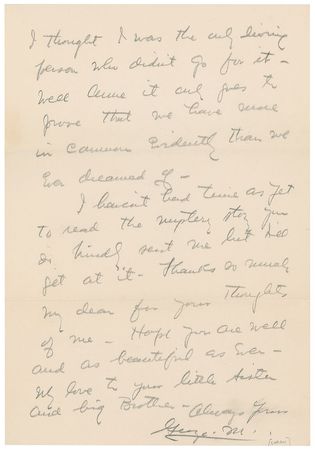 I thought I was the only living
person who didn't go for it -
Well Anne it only goes to
prove that we have more
in common Evidently than we
Ever dreamed of -
I haven't had time as yet
to read the mystery story you
so kindly sent me but will
get at it - Thanks so much
my dear for your thoughts
of me - Hope you are well
and as beautiful as Ever -
My love to your little sister
and big Brother - Always Yours
George M.